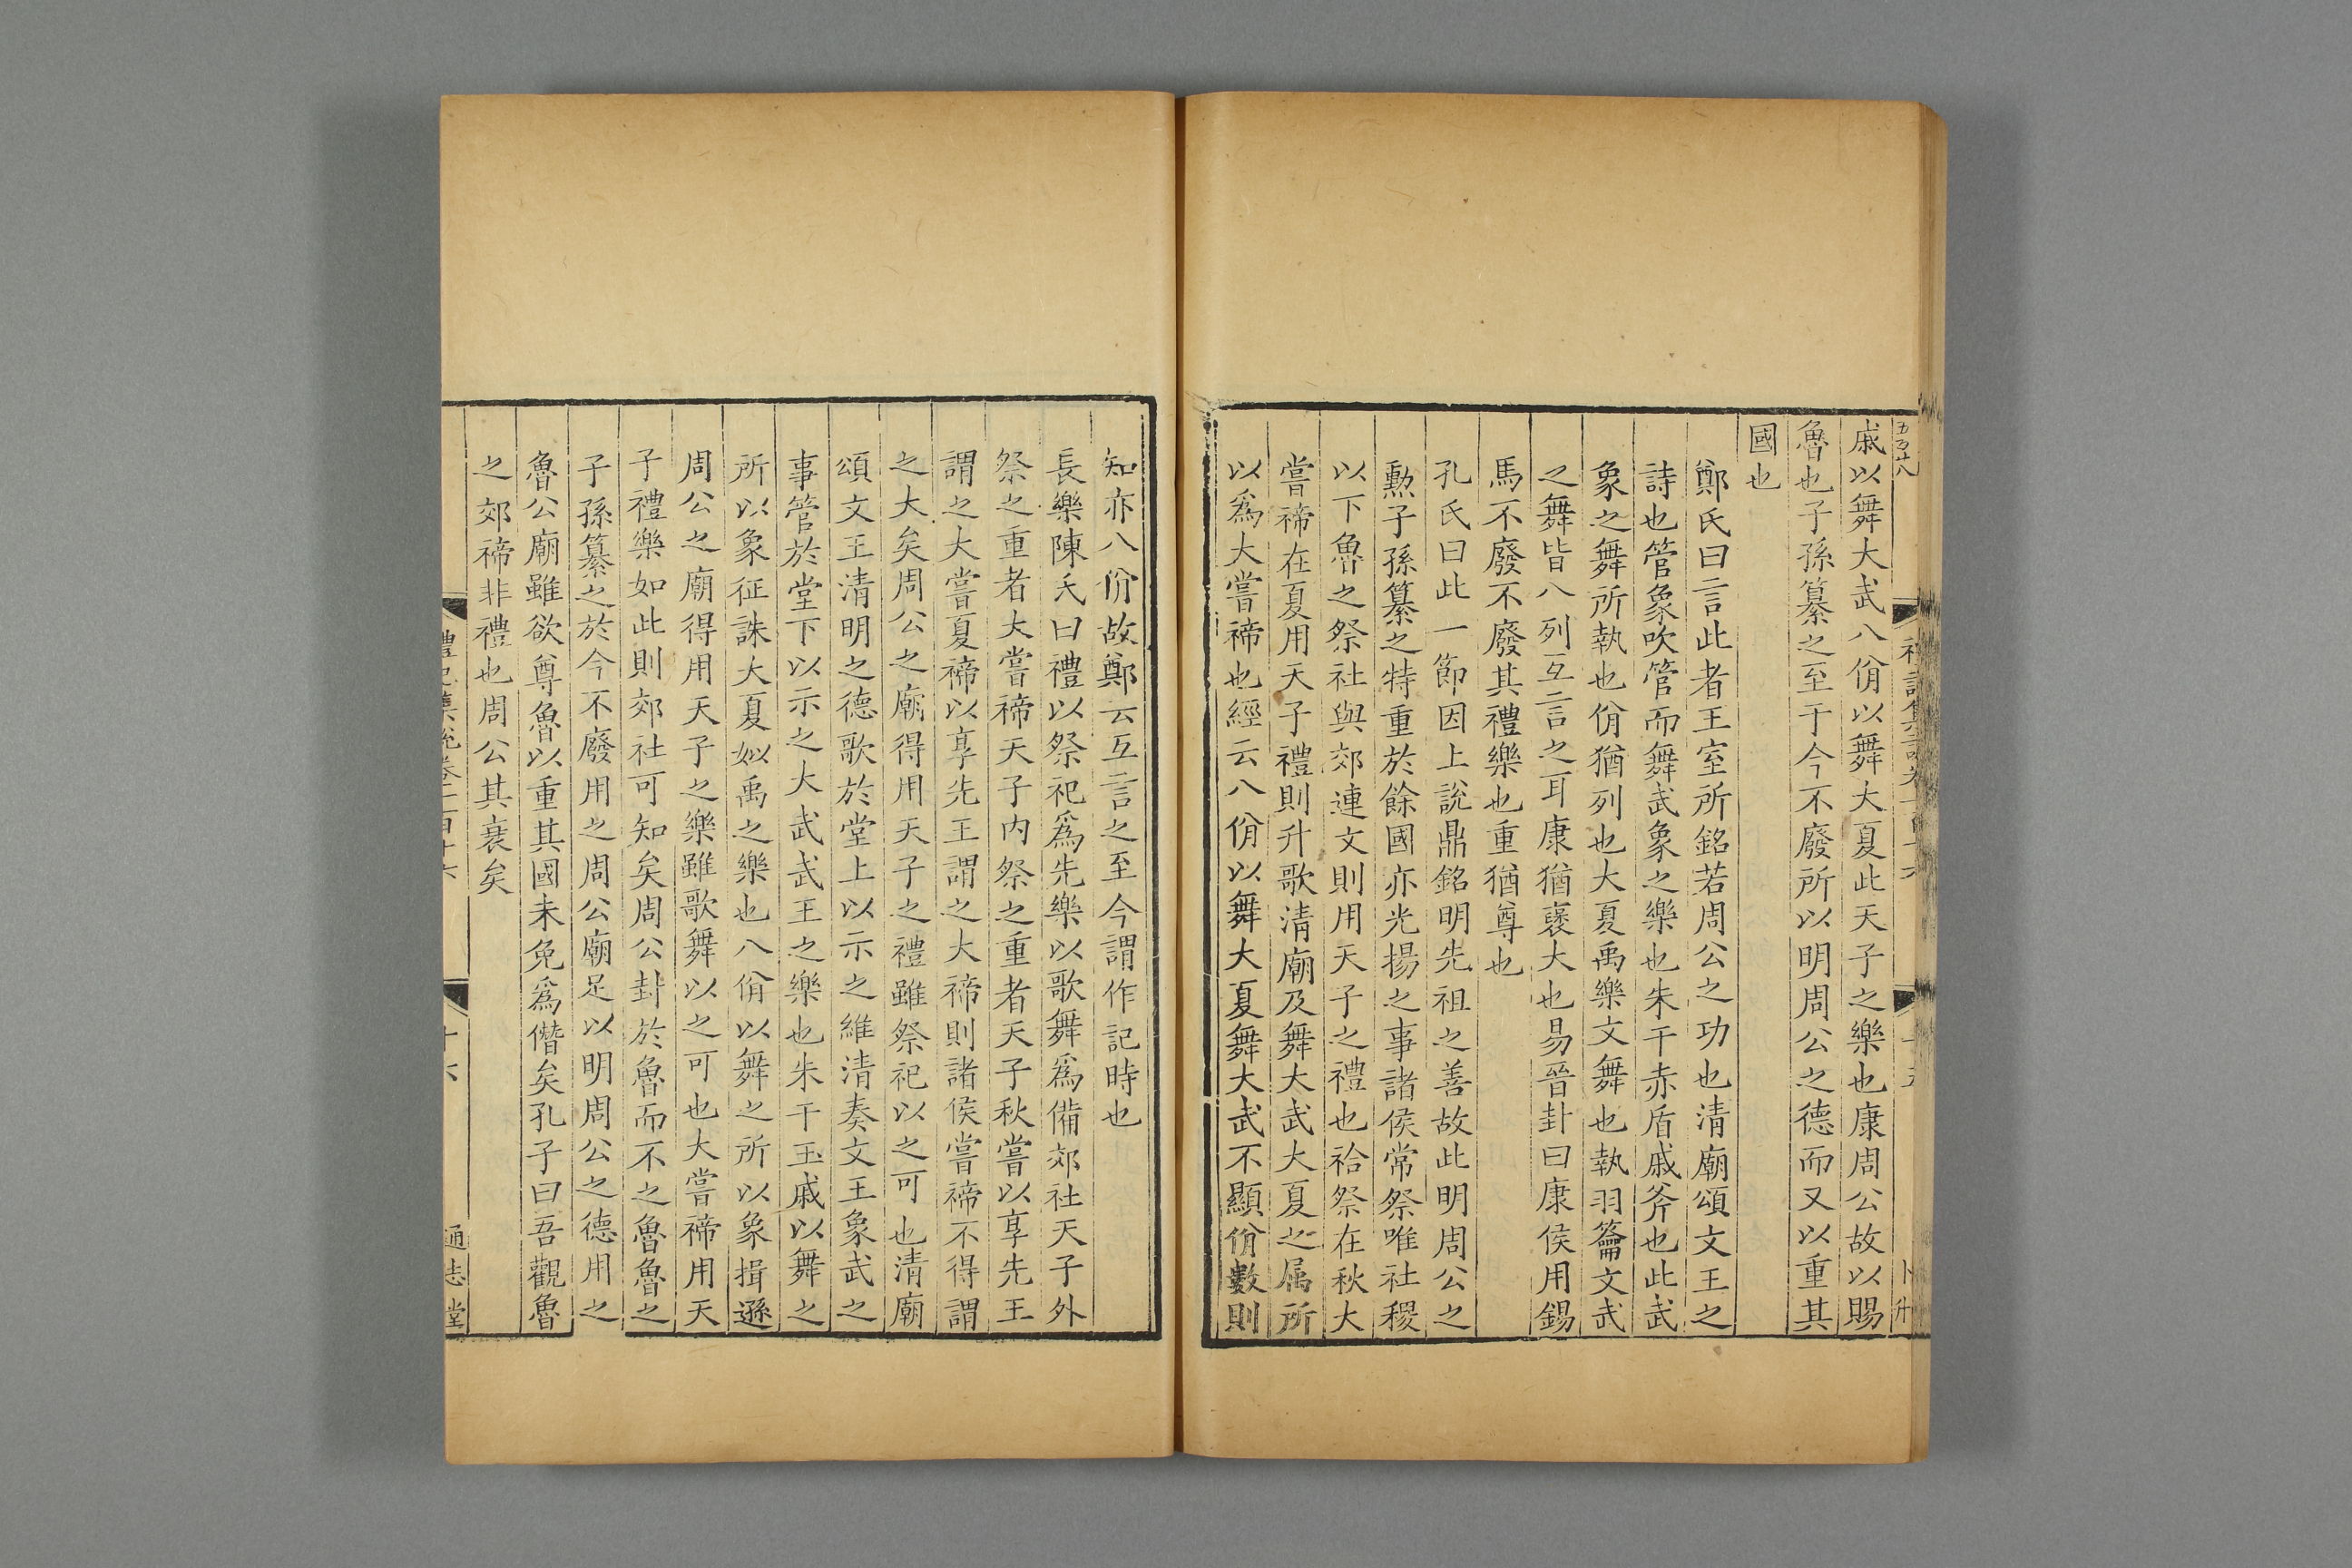 戚以舞大武八佾以舞大夏此天子之樂也康周公故以賜
魯也子孫纂之至于今不廢所以明周公之德而又以重其
國也
鄭氏曰言此者王室所銘若周公之功也清廟頌文王之
詩也管象吹管而舞武象之樂也朱干赤盾戚斧也此武
象之舞所執也佾猶列也大夏禹樂文舞也執羽籥文武
之舞皆八列互言之耳康猶襃大也易晉卦曰康侯用錫
馬不廢不廢其禮樂也重猶尊也
孔氏曰此一節因上說鼎銘明先祖之善故此明周公之
勲子孫纂之特重於餘國亦光揚之事諸侯常祭唯社稷
以下魯之祭社與郊連文則用天子之禮也祫祭在秋大
嘗禘在夏用天子禮則升歌清廟及舞大武大夏之属所
以爲大嘗禘也經云八佾以舞大夏舞大武不顯佾數則
知亦八佾故鄭云互言之至今謂作記時也
長樂陳氏曰禮以祭祀爲先樂以歌舞爲備郊社天子外
祭之重者大嘗禘天子内祭之重者天子秋嘗以享先王
謂之大嘗夏禘以享先王謂之大禘則諸侯嘗禘不得謂
之大矣周公之廟得用天子之禮雖祭祀以之可也清廟
頌文王清明之德歌於堂上以示之維清奏文王象武之
事管於堂下以示之大武武王之樂也朱干玉戚以舞之
所以象征誅大夏姒禹之樂也八佾以舞之所以象揖遜
周公之廟得用天子之樂雖歌舞以之可也大嘗禘用天
子禮樂如此則郊社可知矣周公封於魯而不之魯魯之
子孫纂之於今不廢用之周公廟足以明周公之德用之
魯公廟雖欲尊魯以重其國未免爲僭矣孔子曰吾觀魯
之郊禘非禮也周公其衰矣
禮記集說卷一百十六
十六
通志堂